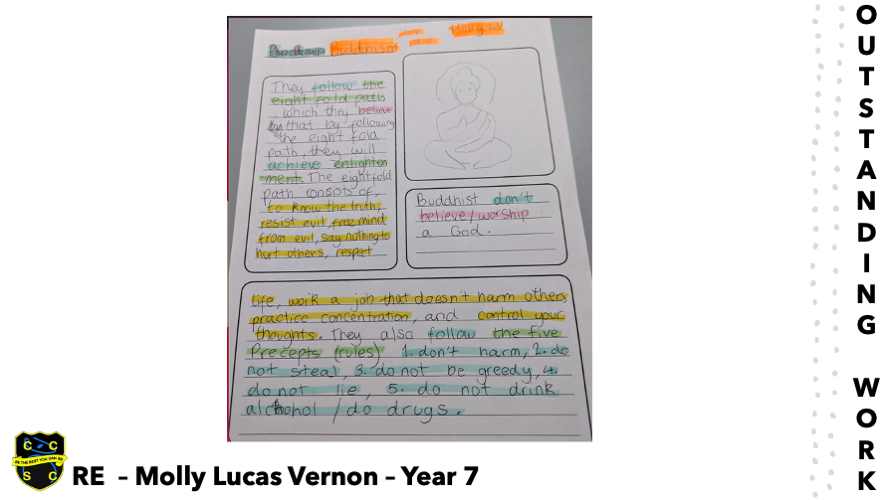 Buddhism
They follow the
eight fold path
, which they believe
that by following
the eight fold
path, they will
achieve enlighten
ment. The eightfold
path consists of,
to know the truth,
resist evil, free mind
from evil, say nothing to
hurt others, respect
Buddhist don't
believe/worship
a God.
life, work a job that doesn't harm others,
practice concentration, and control your
thoughts. They also follow the five
Precepts (rules) 1. don't harm, 2. do
not steal, 3. do not be greedy, 4.
do not lie, 5. do not drink
alchohol / do drugs.
OUTSTANDING WORK
C C
BE THE BEST YOU CAN BE
S C
RE - Molly Lucas Vernon - Year 7